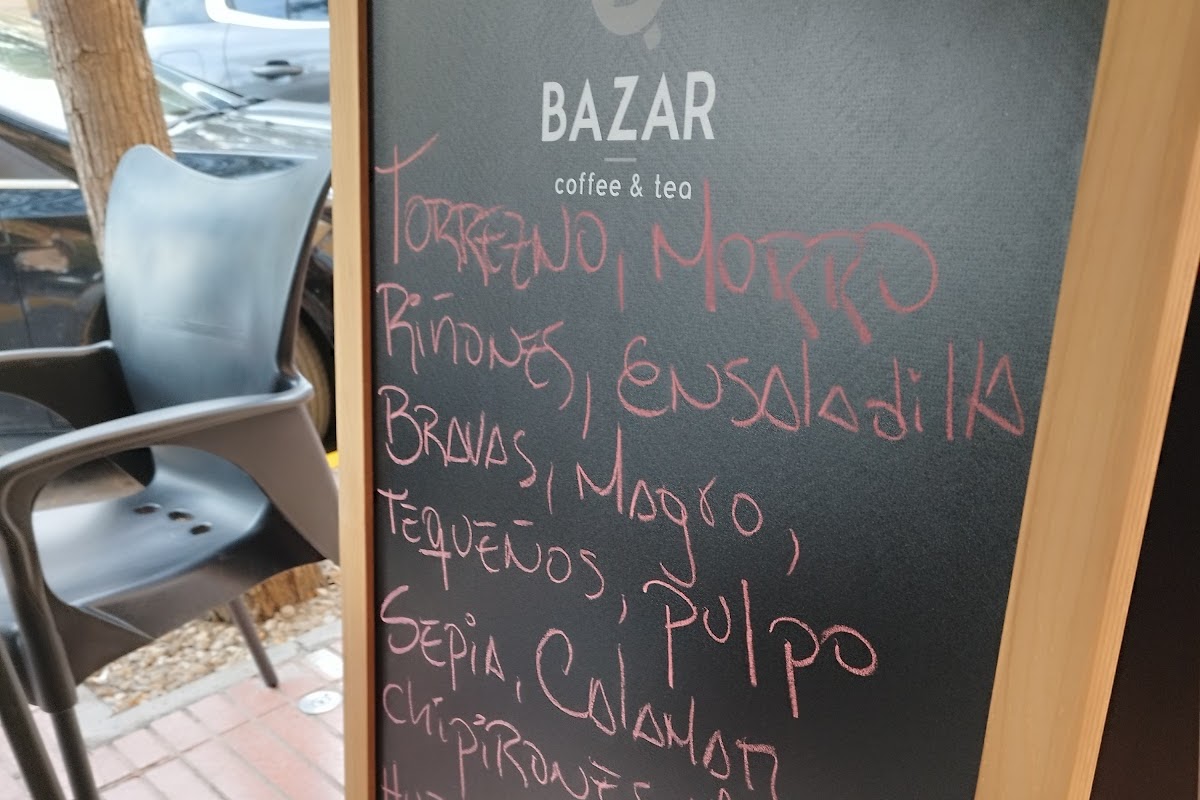 BAZAR
coffee & tea
TORREZNO, MORRO
RiñONES, ENSAlAdillA
BRAVAS, Magro,
TEQUEÑOS, pulpo
SEpiA, CAlAMAr
ChipiRONES